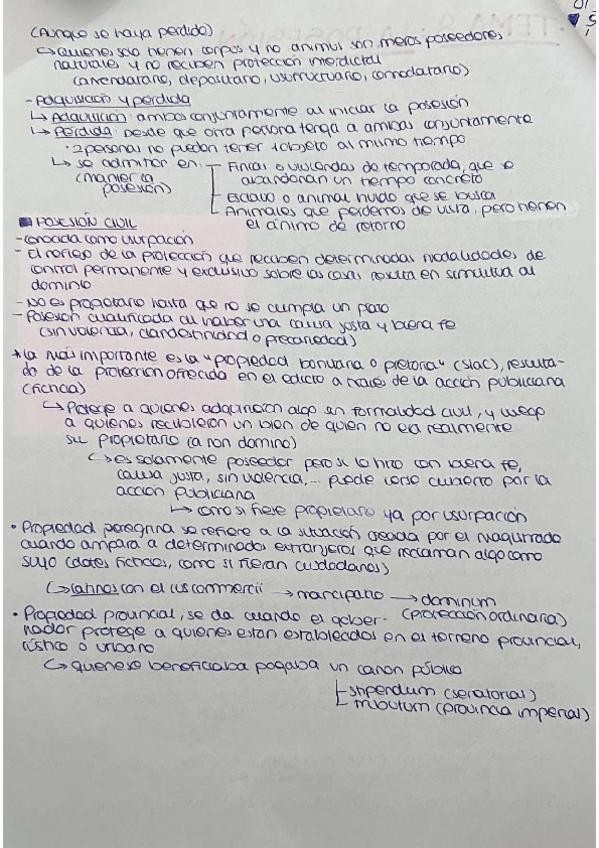 (Aunque se haya perdido)
↳ Quienes solo tienen corpus y no animus son meros poseedores
naturales y no reciben protección interdictal
(arrendatario, depositario, usufructuario, comodatario)
- Adquisición y pérdida
↳ Adquisición: ambos conjuntamente al iniciar la posesión
↳ Pérdida: desde que otra persona tenga a ambas conjuntamente
· 2 personas no pueden tener 1 objeto al mismo tiempo
↳ se admiten en: Fincas o viviendas de temporada, que se
(mantener la posesión) abandonan un tiempo concreto
Esclavo o animal huido que se busca
Animales que perdemos de vista, pero tienen
el ánimo de retorno
POSESIÓN CIVIL
- Conocida como usurpación
- El de la protección que reciben determinadas modalidades de
control permanente y exclusivo sobre las cosas, resulta en similitud al
dominio
- No es propietario hasta que no se cumpla un plazo
- Posesión cualificada al haber una causa justa y buena fe
(sin violencia, clandestinidad o precariedad)
* La más importante es la "propiedad bonitaria o pretoria" (s. I a.C), resulta-
do de la protección ofrecida en el edicto a través de la acción publiciana
(ficticia)
↳ Protege a quienes adquirieron algo sin formalidad civil, y luego
a quienes recibieron un bien de quien no era realmente
su propietario (a non domino)
↳ es solamente poseedor pero si lo hizo con buena fe,
causa justa, sin violencia,... puede verse cubierto por la
acción publiciana
↳ como si fuese propietario ya por usurpación
• Propiedad peregrina se refiere a la situación creada por el magistrado
cuando ampara a determinados extranjeros que reclaman algo como
suyo (dotes ficticias, como si fueran ciudadanos)
↳ latinos con el ius commercii → mancipatio → dominum
(protección ordinaria)
• Propiedad provincial, se da cuando el gober-
nador protege a quienes están establecidos en el terreno provincial,
rústico o urbano
↳ quien se beneficiaba pagaba un canon público
stipendium (senatorial)
tributum (provincia imperial)